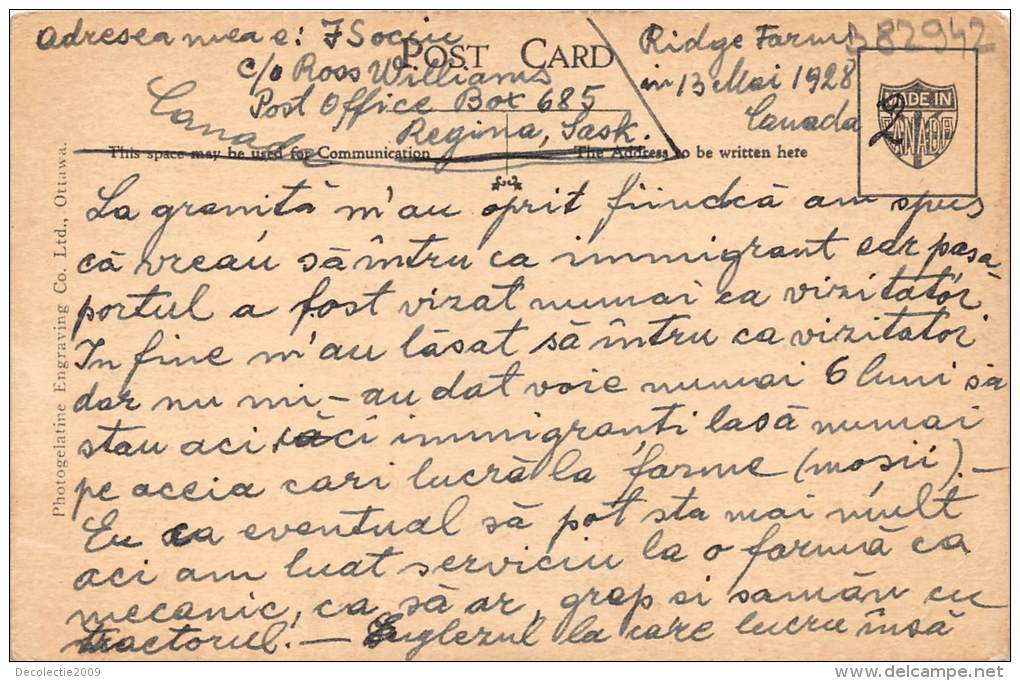 Adresea mea e: I Sociu
c/o Ross Williams
Post Office Box 685
Regina, Sask.
Canada
Ridge Farm
in 13 Mai 1928
Canada
382942
POST CARD
MADE IN
CANADA
2
This space may be used for Communication
The Address to be written here
Photogelatine Engraving Co. Ltd., Ottawa.
La graniță m'au oprit fiindcă am spus
că vreau să întru ca immigrant ear pașa-
portul a fost vizat numai ca vizitator
In fine m'au lăsat să întru ca vizitator
dar nu mi-au dat voie numai 6 luni să
stau aci, căci immigranți lasă numai
pe aceia cari lucră la farme (moșii). -
Eu ca eventual să pot sta mai mult
aci am luat serviciu la o farmă ca
mecanic, ca să ar, grap si samăn cu
tractorul. - Englezul la care lucru însă
Decolectie2009
www.delcampe.net